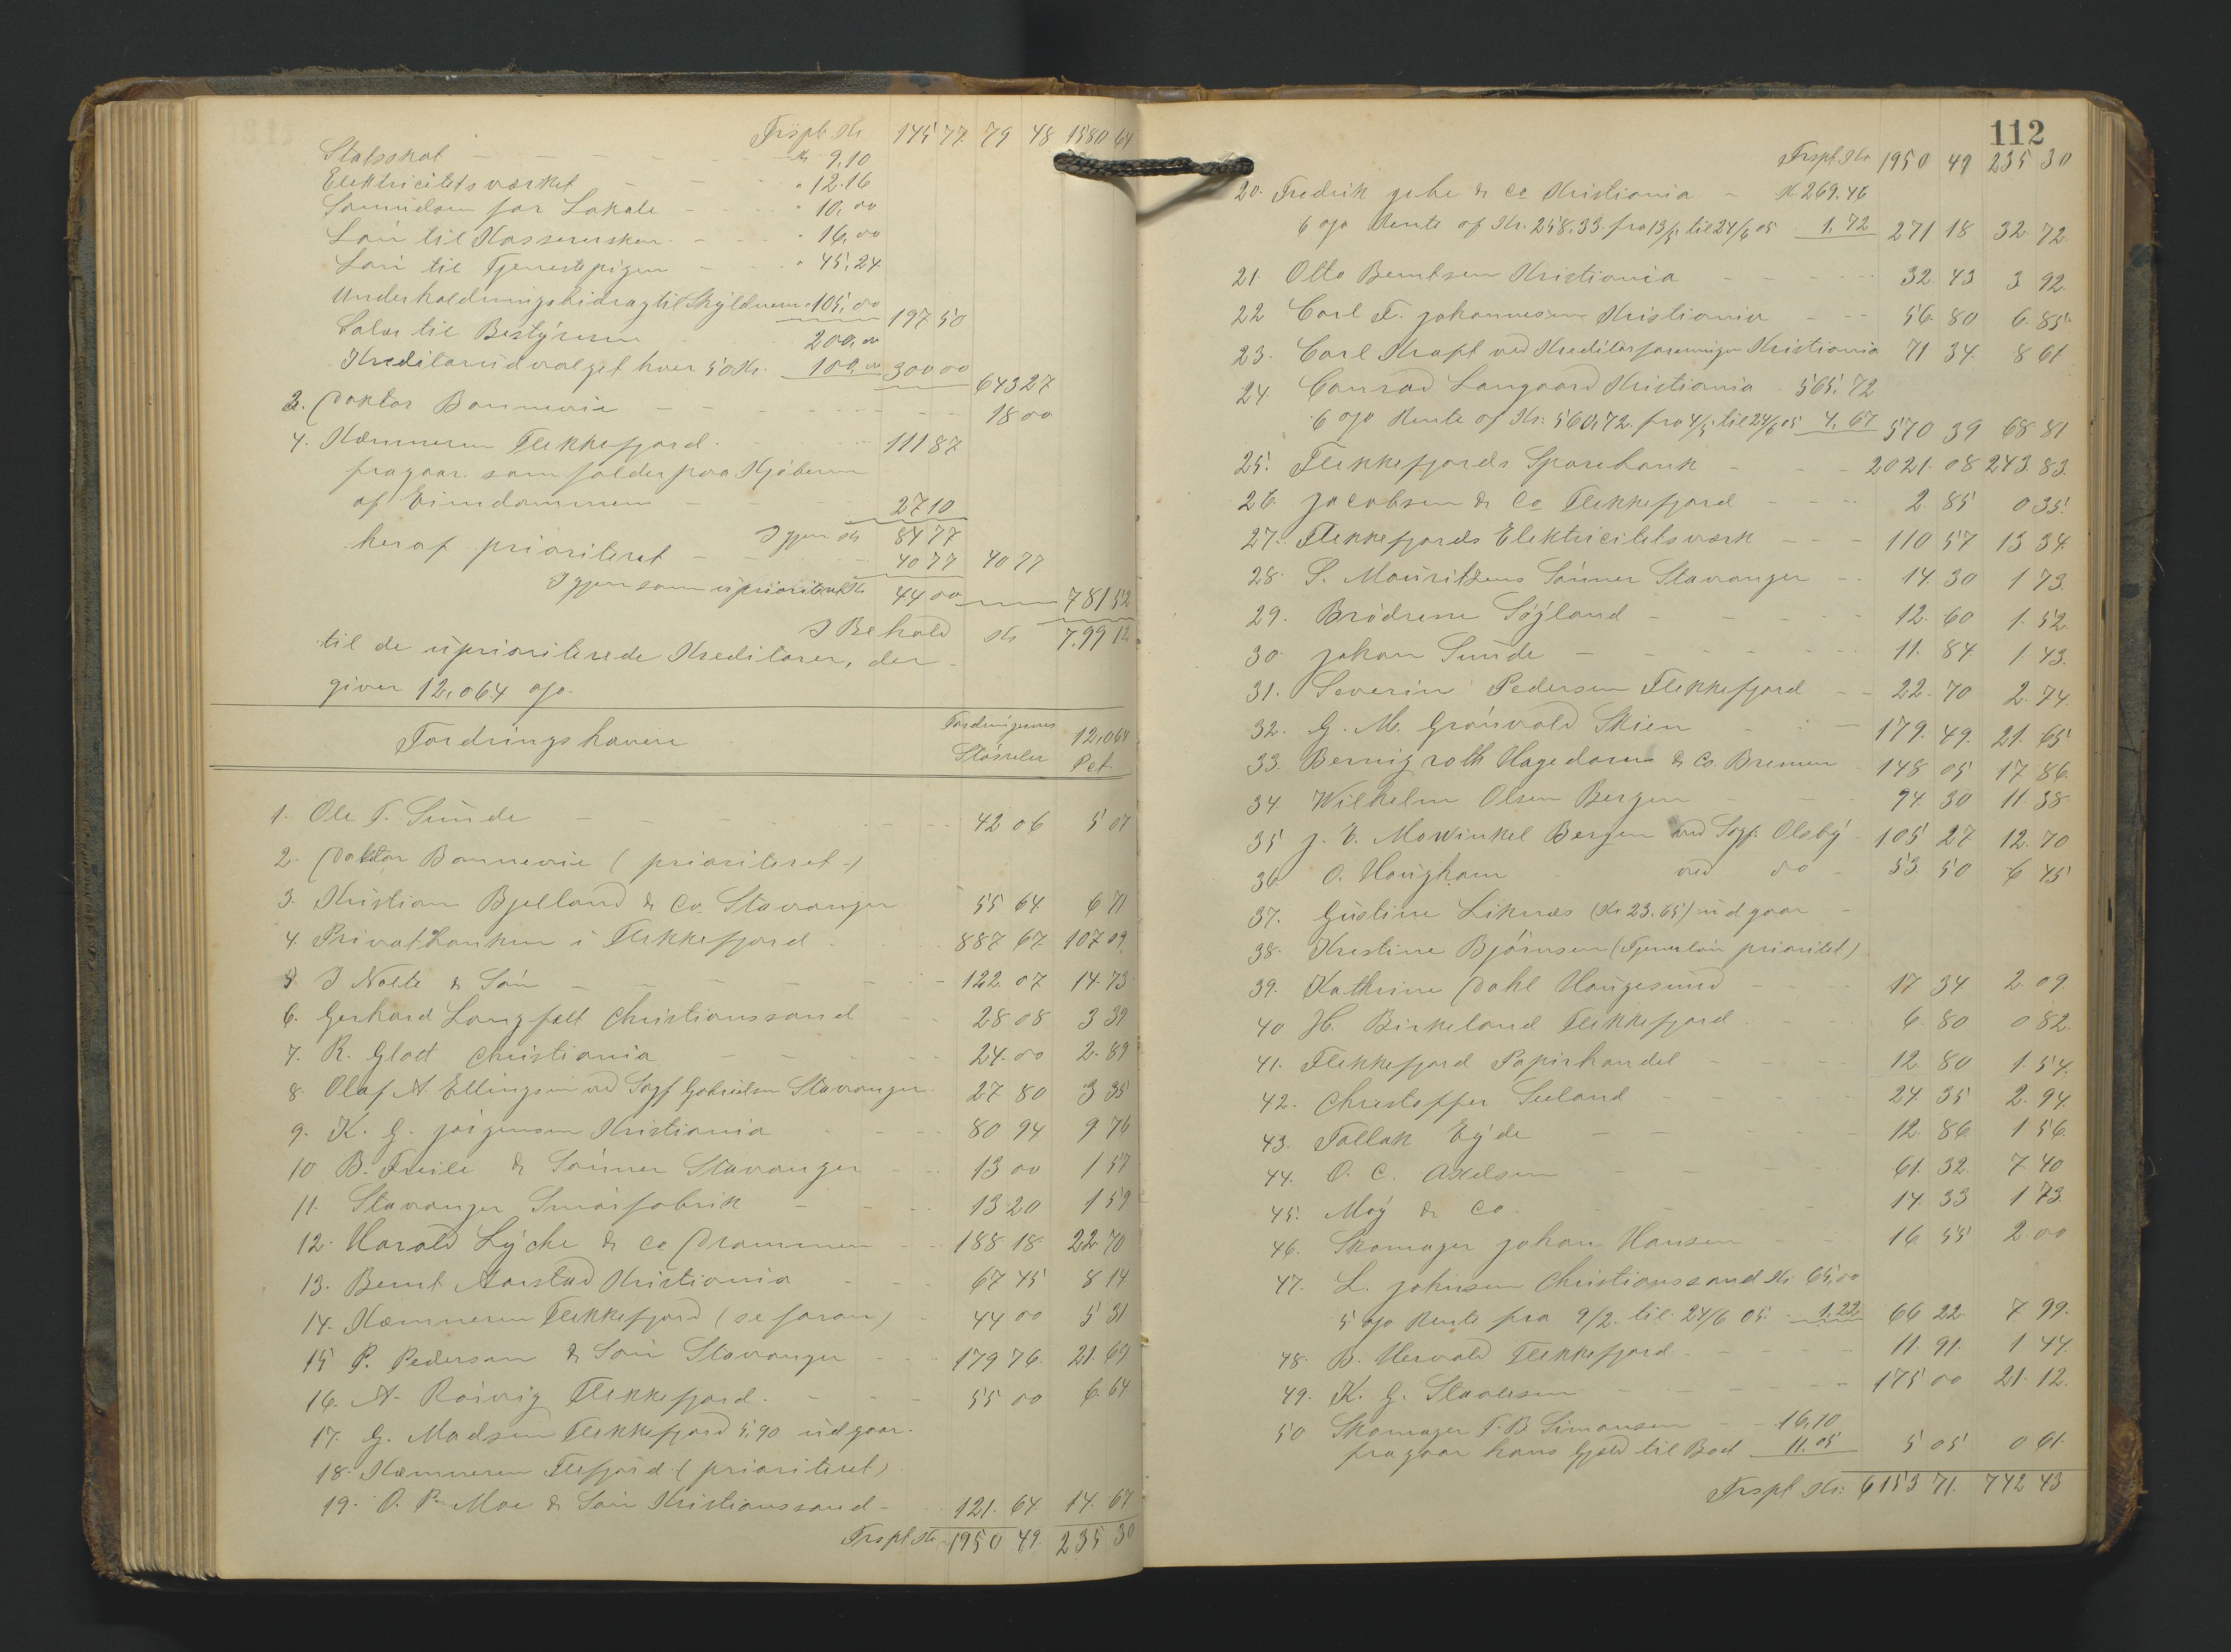 Trspt Kr 145 77. 79 48 1580 64
Statsskat — — — — Kr 9,10
Elektricitetsværket — — " 12.16
Samuelsen for Lokale — — " 10,00
Løn til Kasserersken — — " 16,00
Løn til Tjenestepigen — — " 45,24
Underholdningsbidrag til Skyldneren " 105,00 197 50
Salær til Bestyreren 200,00
Kreditorudvalget hver 50 Kr. 100,00 300 00 643 27
2. Doktor Bonnevie — — — — 18 00
4. Kæmneren Flekkefjord. — 111 87
fragaar som falder paa Kjøberen
af Eiendommen — 27 10
Igjen Kr 84 77
heraf prioriteret — — 40 77 40 77
Igjen som uprioriteret Kr 44 00 — 781 52
I Behold Kr 799 12
til de uprioriterede Kreditorer, der
giver 12,064 o/o.
Fordringshavere
Fordringernes Størrelse
12,064 Pct.
1. Ole T. Sunde — — — 42 06 5 07
2. Doktor Bonnevie (prioriteret)
3. Kristian Bjelland & Co. Stavanger 55 64 6 71
4. Privatbanken i Flekkefjord. 887 67 107 09
5. J Nolte & Søn — — — 122 07 14 73
6. Gerhard Langfelt Christianssand 28 08 3 39
7. R. Gladt Christiania — — 24.00 2.89
8. Olaf A. Ellingsen ved Sagf Gabrielsen Stavanger. 27 80 3 35
9. K. G. Jørgensen Kristiania 80 94 9 76
10 B. Freile & Sønner Stavanger 13 00 1 57
11. Stavanger Smørfabrik — 13 20 1 59
12. Harald Lyche & Co Drammen 188 18 22 70
13. Bernt Aarstad Kristiania 67 45 8 14
14. Kæmneren Flekkefjord (se foran) 44 00 5 31
15 P. Pedersen & Søn Stavanger 179 76. 21.69
16. A. Røivig Flekkefjord. — 55 00 6.64
17. G. Madsen Flekkefjord 5,90 udgaar.
18. Kæmneren Flefjord (prioriteret)
19. O. P. Moe & Søn Kristianssand — 121. 64 14. 67
Trspt Kr. 1950 49. 235 30
112
Trspt Kr 1950 49 235 30
20. Fredrik Jebe & Co Kristiania — Kr. 269.46
6 o/o Rente af Kr. 258,33. fra 13/5 til 24/6 05 1,72 271 18 32 72.
21. Otto Berntsen Kristiania — — 32. 43 3 92.
22 Carl F. Johannesen Kristiania — — 56. 80 6. 85
23. Carl Kraft ved Kreditorforeningen Kristiania 71 34. 8 61
24 Conrad Langaard Kristiania. 565,72
6 o/o Rente af Kr. 560,72. fra 4/5 til 24/6 05 4,67 570 39 68 81
25. Flekkefjords Sparebank — — 2021. 08 243 83.
26. Jacobsen & Co Flekkefjord — — 2. 85 0 35.
27. Flekkefjords Elektricitetsværk — — 110 57 13 34.
28. S. Mauritzens Sønner Stavanger — 14. 30 1 73.
29. Brødrene Søyland — — — 12. 60 1. 52.
30. Johan Sunde — — — — 11. 84 1 43.
31. Severin Pedersen Flekkefjord — — 22. 70 2. 74
32. G. M. Grønvold Skien — 179. 49. 21. 65
33. Bernigroth Hagedorn & Co. Bremen 148 05 17 86.
34. Wilhelm Olsen Bergen — — 94. 30 11. 38
35 J. E. Mowinkel Bergen ved Sagf. Olsby 105 27 12. 70
36 O. Haugham ved do — 53. 50 6 45
37. Gustine Liknæs (Kr 23.65) udgaar —
38. Kristine Bjørnsen (Tjenerløn prioritet)
39. Kathrine Dahl Haugesund — — 17 34 2. 09
40 H. Birkeland Flekkefjord. — 6. 80 0 82.
41. Flekkefjord Papirhandel — — 12. 80 1. 54.
42. Christoffer Seeland — — 24. 35 2. 94.
43. Tallak Eyde — — 12. 86 1 56.
44. O. C. Axelsen — — 61. 32. 7 40
45. Moy & Co. — — 14. 33 1 73.
46. Skomager Johan Hansen — 16 55 2 00
47. L. Johnsen Christianssand Kr. 65,00
5 o/o Rente fra 9/2 til 24/6 05. 1,22 66 22. 7. 99.
48. B. Hervold Flekkefjord — — 11. 91. 1 44.
49. K. G. Stavesen — — 175 00 21. 12.
50 Skomager T. B Simonsen — 16,10
fragaar hans Gjæld til Boet 11.05 5 05 0 61.
Trspt Kr. 6153 71. 742 43